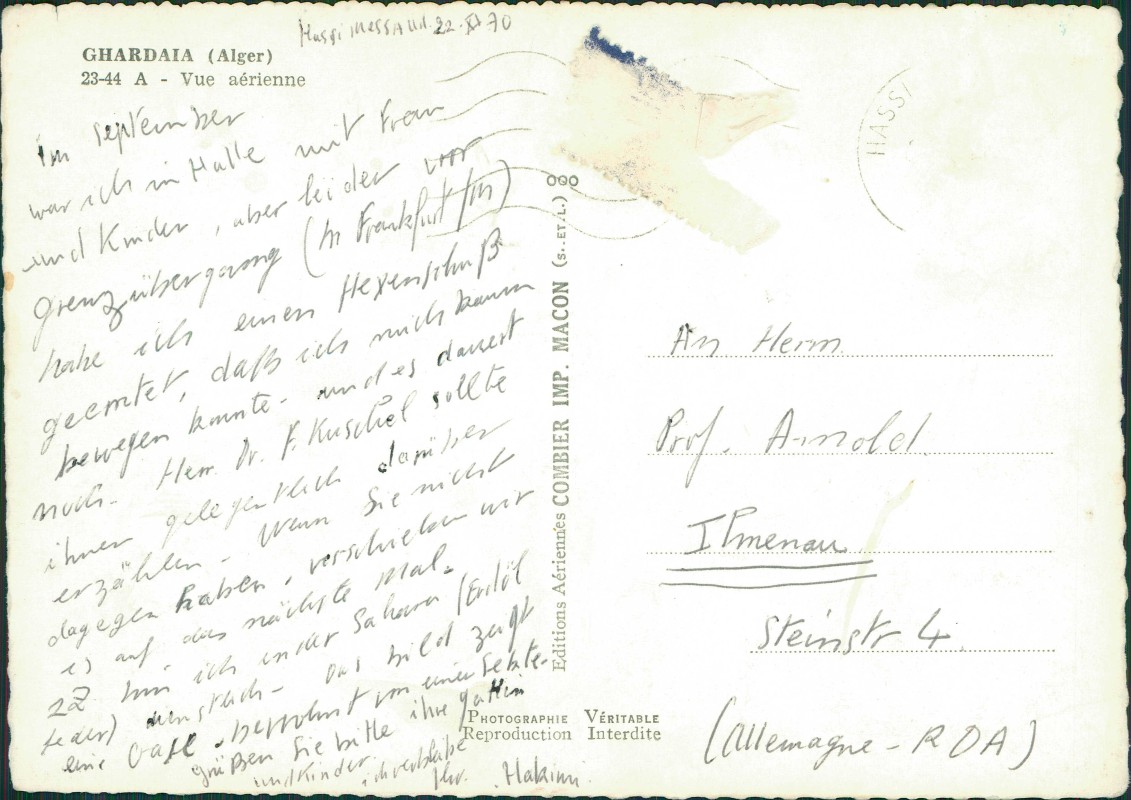 Hassi Messaud. 22. XI 70
GHARDAIA (Alger)
23-44 A - Vue aérienne
Im September
war ich in Halle mit Frau
und Kinder, aber leider vor
Grenzübergang (in Frankfurt/M)
habe ich einen Hexenschuß
geerntet, daß ich mich kaum
bewegen konnte - und es dauert
noch. Herr. Dr. F. Kuschel sollte
ihnen gelegentlich darüber
erzählen - Wenn Sie nicht
dagegen haben, verschieben wir
es auf das nächste Mal.
ZZ bin ich in der Sahara (Erdöl
felder) dienstlich - Das Bild zeigt
eine Oase bewohnt von einer Sekte.
Grüßen Sie bitte ihre Gattin
und Kinder. ich verbleibe
Ihr. Hakimi.
HASSI
Editions Aériennes COMBIER IMP. MACON (S.-ET-L.)
An Herrn
Prof. Arnold.
Ilmenau
Steinstr 4.
(Allemagne - RDA)
PHOTOGRAPHIE VÉRITABLE
Reproduction Interdite